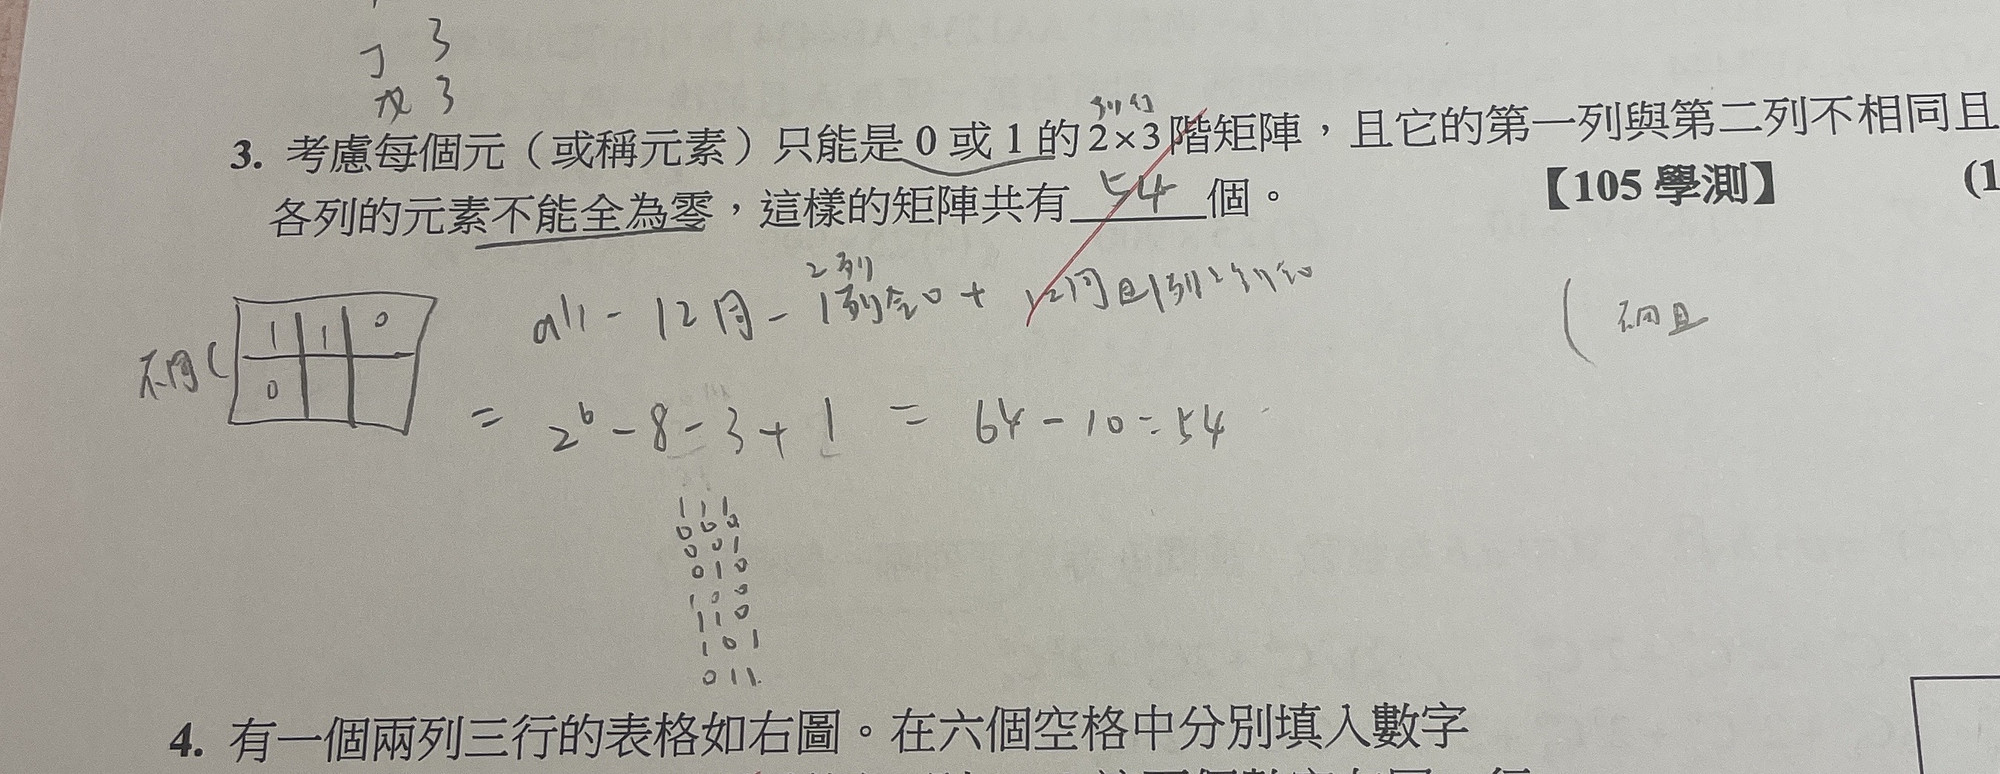 ㄱ 3
戊 3
列 行
3. 考慮每個元（或稱元素）只能是 0 或 1 的 2×3 階矩陣，且它的第一列與第二列不相同且
各列的元素不能全為零，這樣的矩陣共有 54 個。 【105 學測】 (1
2列
all - 12同 - 1列全0 + 12同且1列2列
1 1 0
不同(
0
不同且
= 2⁶ - 8 - 3 + 1 = 64 - 10 = 54
1 1 1
0 0 0
0 0 1
0 1 0
1 0 0
1 1 0
1 0 1
0 1 1
4. 有一個兩列三行的表格如右圖。在六個空格中分別填入數字